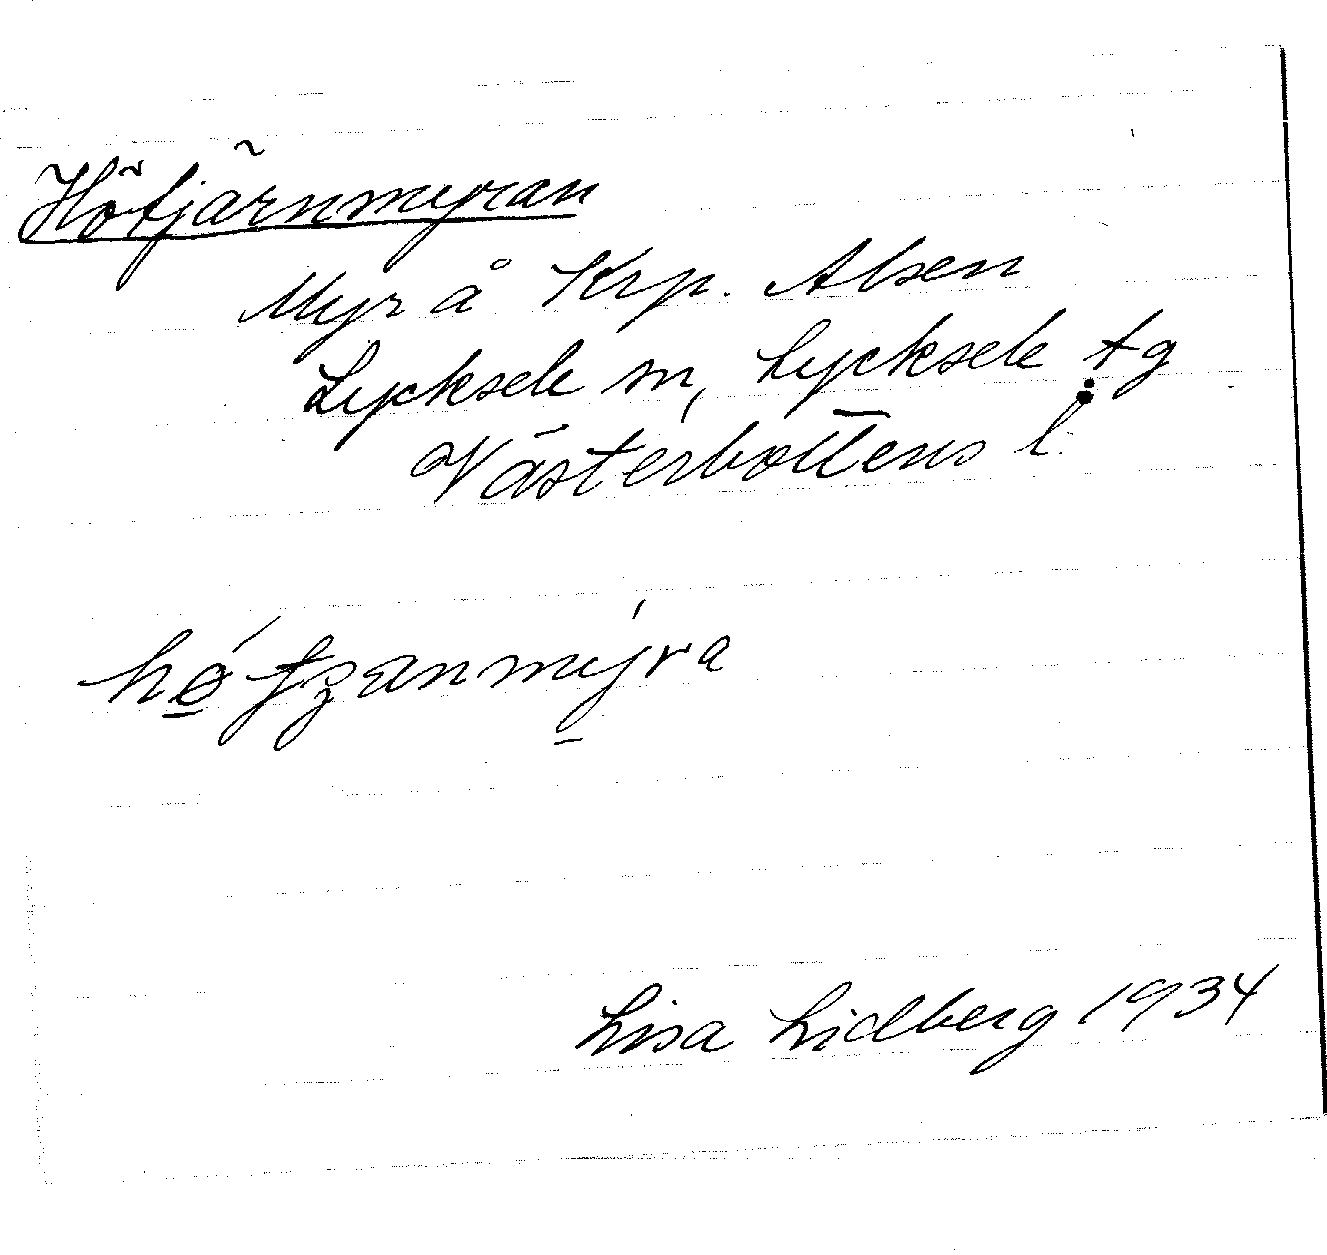 Hötjärnmyran
Myr å Krp. Alsen
Lycksele m, Lycksele tg
Västerbottens l.
Lisa Lidberg 1934